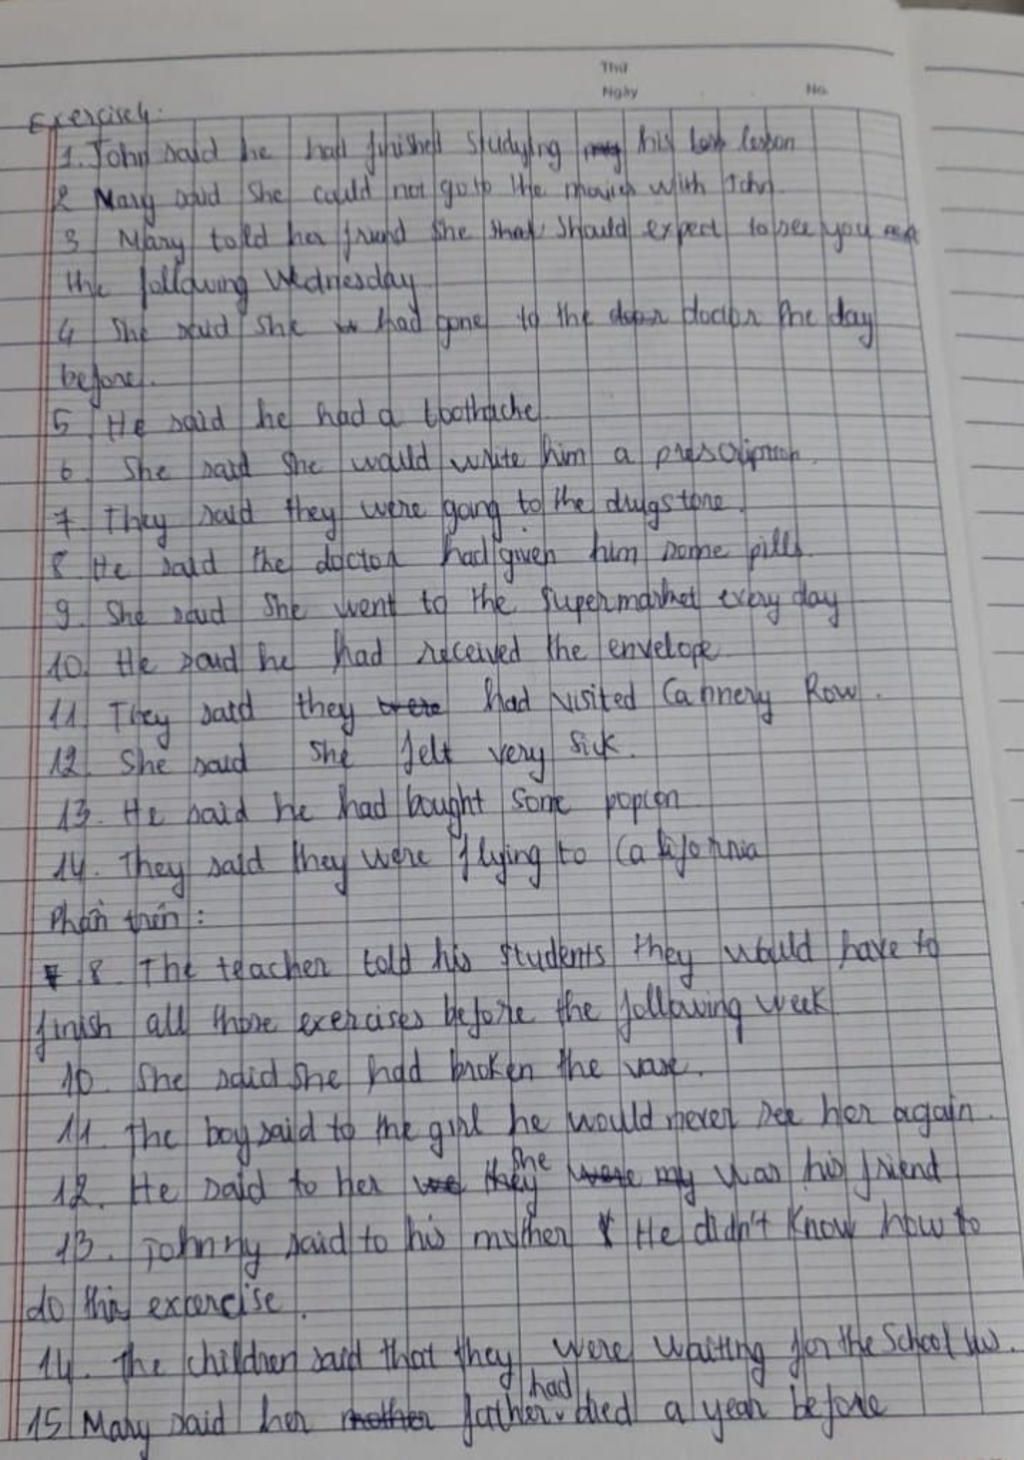 Thứ
Ngày No.
Exercise 4:
1. John said he had finished studying my his lesson
2 Mary said she could not go to the movies with John.
3 Mary told her friend she shal should expect to see you
the following Wednesday
4 She said she had gone to the door doctor the day
before.
5 He said he had a toothache
6 She said she would write him a prescription.
7. They said they were going to the drugstore.
8. He said the doctor had given him some pills.
9. She said she went to the supermarket every day
10. He said he had received the envelope
11 They said they were had visited Cannery Row.
12. She said she felt very sick.
13. He said he had bought some popcon
14. They said they were flying to California
Phần trên:
7 8. The teacher told his students they would have to
finish all those exercises before the following week
10. She said she had broken the vase.
11. the boy said to the girl he would never see her again.
she
12. He said to her they were my was his friend
13. Johnny said to his mother He didn't know how to
do this excercise.
14. the children said that they were waiting for the School bus.
had
15 Mary said her mother father died a year before